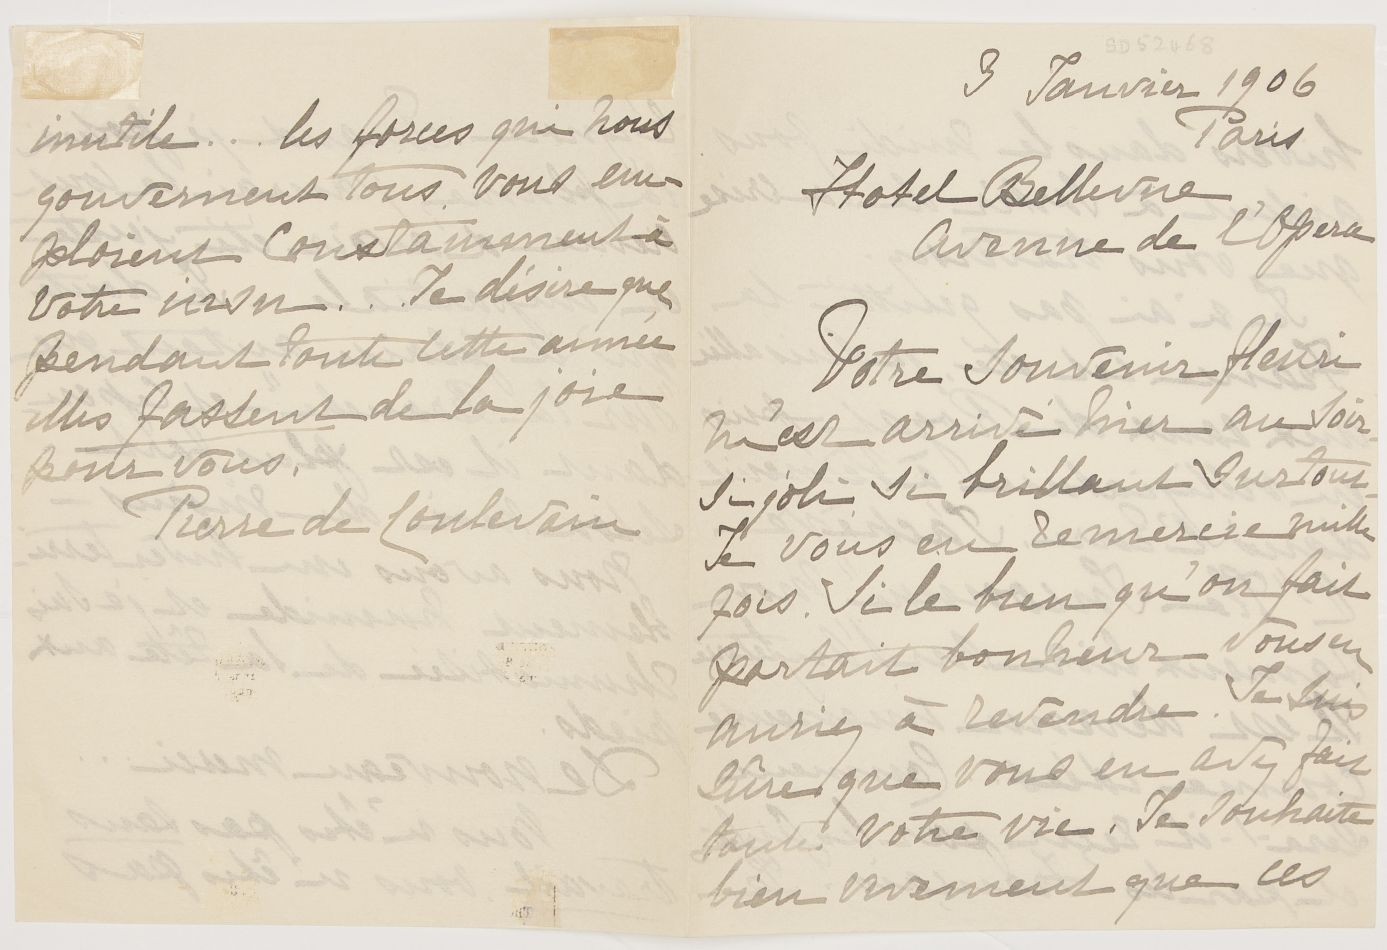 SD52468
3 Janvier 1906
Paris
Hotel Bellevue
Avenue de l'Opera
Votre souvenir fleuri
m'est arrivé hier au soir
si joli si brillant surtout
Je vous en remercie mille
fois. Si le bien qu'on fait
portait bonheur vous en
auriez à revendre. Je suis
sûre que vous en avez fait
toute votre vie. Je souhaite
bien vivement que ces
inutile... les forces qui nous
gouvernent tous, vous em-
ploient constamment à
votre insu... Je désire que
pendant toute cette année
elles fassent de la joie
pour vous.
Pierre de Coulevain